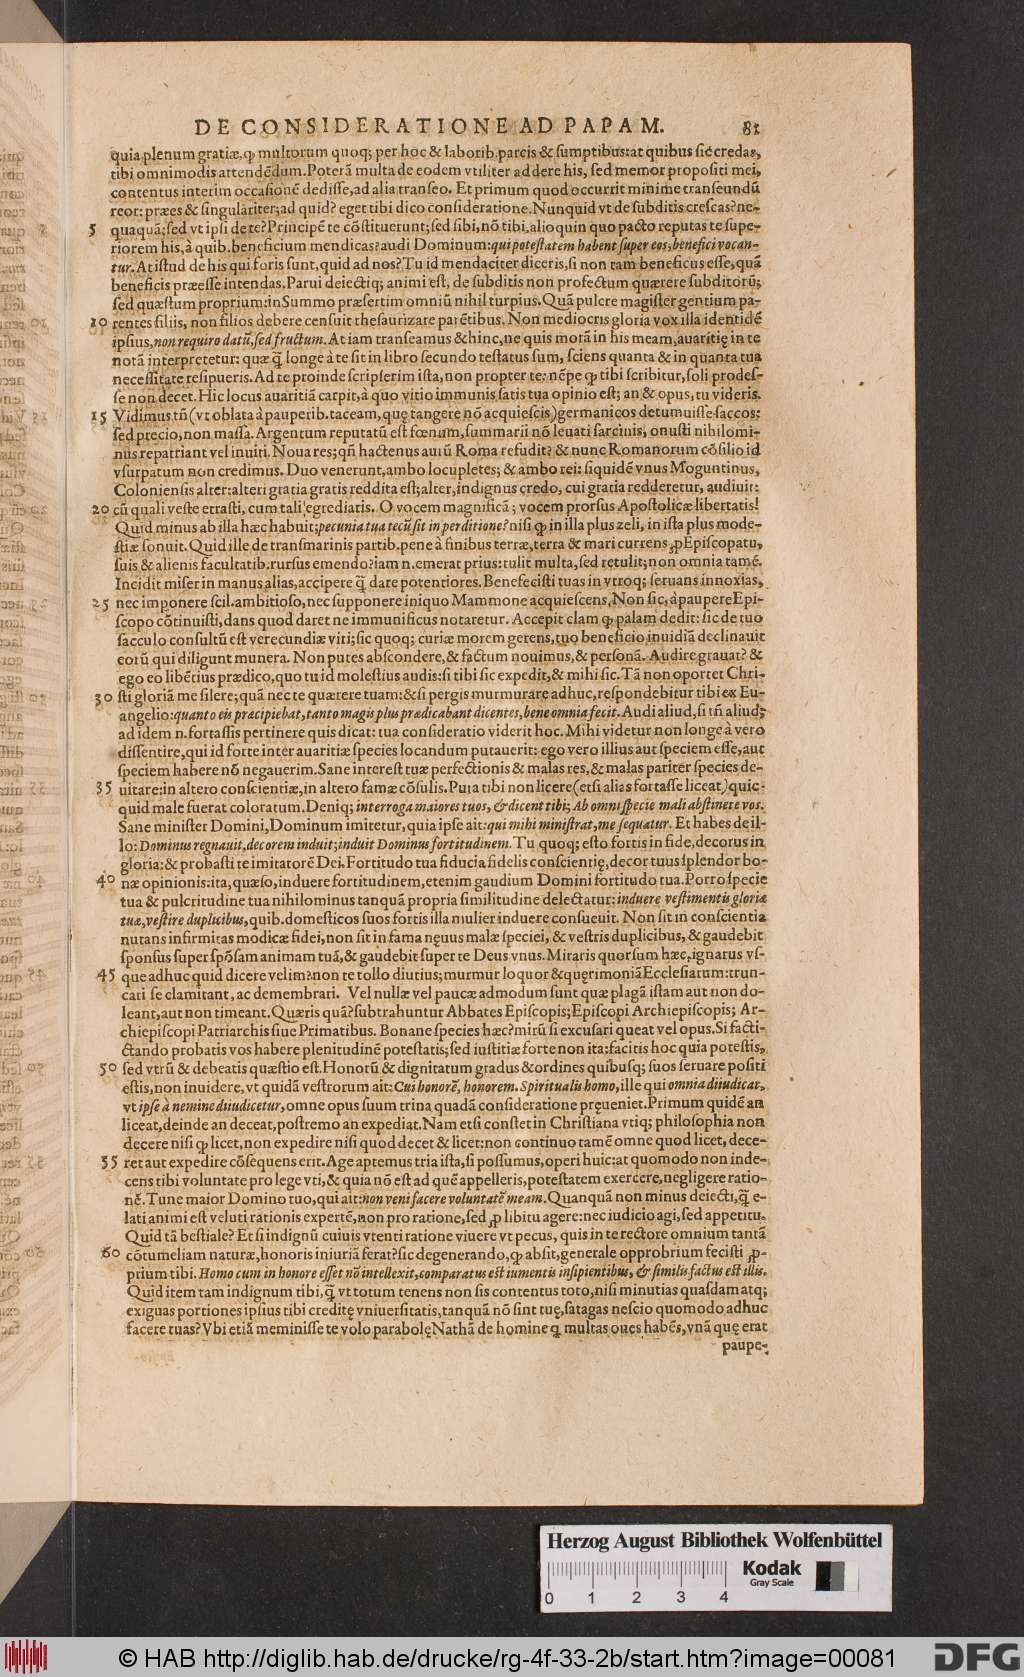 DE CONSIDERATIONE AD PAPAM. 81
quia plenum gratiæ, ꝙ multorum quoq; per hoc & laborib. parcis & sumptibus: at quibus sic credas,
tibi omnimodis attendẽdum. Poterã multa de eodem vtiliter addere his, sed memor propositi mei,
contentus interim occasionẽ dedisse, ad alia transeo. Et primum quod occurrit minime transeundũ
reor: præes & singulariter; ad quid? eget tibi dico consideratione. Nunquid vt de subditis crescas? ne-
5 quaquã; sed vt ipsi de te? Principẽ te cõstituerunt; sed sibi, nõ tibi. alioquin quo pacto reputas te supe-
riorem his, à quib. beneficium mendicas? audi Dominum: qui potestatem habent super eos, benefici vocan-
tur. At istud de his qui foris sunt, quid ad nos? Tu id mendaciter diceris, si non tam beneficus esse, quã
beneficis præesse intendas. Parui deiectiq; animi est, de subditis non profectum quærere subditorũ;
sed quæstum proprium: in Summo præsertim omniũ nihil turpius. Quã pulcre magister gentium pa-
10 rentes filiis, non filios debere censuit thesaurizare parẽtibus. Non mediocris gloria vox illa identidẽ
ipsius, non requiro datũ, sed fructum. At iam transeamus & hinc, ne quis morã in his meam, auaritię in te
notã interpretetur: quæ q̃ longe à te sit in libro secundo testatus sum, sciens quanta & in quanta tua
necessitate respueris. Ad te proinde scripserim ista, non propter te: nẽpe ꝙ tibi scribitur, soli prodes-
se non decet. Hic locus auaritiã carpit, à quo vitio immunis satis tua opinio est; an & opus, tu videris.
15 Vidimus tñ (vt oblata à pauperib. taceam, quę tangere nõ acquiescis) germanicos detumuisse saccos:
sed precio, non massa. Argentum reputatũ est fœnum, summarii nõ leuati sarcinis, onusti nihilomi-
nus repatriant vel inuiti. Noua res; qñ hactenus aurũ Roma refudit? & nunc Romanorum cõsilio id
vsurpatum non credimus. Duo venerunt, ambo locupletes; & ambo rei: siquidẽ vnus Moguntinus,
Coloniensis alter: alteri gratia gratis reddita est; alter, indignus credo, cui gratia redderetur, audiuit:
20 cũ quali veste etrasti, cum tali egrediaris. O vocem magnificã; vocem prorsus Apostolicæ libertatis!
Quid minus ab illa hæc habuit; pecunia tua tecũ sit in perditione? nisi ꝙ in illa plus zeli, in ista plus mode-
stiæ sonuit. Quid ille de transmarinis partib. pene à finibus terræ, terra & mari currens ꝓ Episcopatu,
suis & alienis facultatib. rursus emendo? iam n. emerat prius: tulit multa, sed retulit; non omnia tamẽ.
Incidit miser in manus alias, accipere q̃ dare potentiores. Benefecisti tuas in vtroq; seruans innoxias,
25 nec imponere scil. ambitioso, nec supponere iniquo Mammone acquiescens. Non sic, à paupere Epi-
scopo cõtinuisti, dans quod daret ne immunificus notaretur. Accepit clam ꝙ palam dedit: sic de tuo
sacculo consultũ est verecundiæ viri; sic quoq; curiæ morem gerens, tuo beneficio inuidiã declinauit
eorũ qui diligunt munera. Non putes abscondere, & factum nouimus, & personã. Audire grauat? &
ego eo libẽtius prædico, quo tu id molestius audis: si tibi sic expedit, & mihi sic. Tã non oportet Chri-
30 sti gloriã me silere; quã nec te quærere tuam: & si pergis murmurare adhuc, respondebitur tibi ex Eu-
angelio: quanto eis præcipiebat, tanto magis plus prædicabant dicentes, bene omnia fecit. Audi aliud, si tñ aliud;
ad idem n. fortassis pertinere quis dicat: tua consideratio viderit hoc. Mihi videtur non longe à vero
dissentire, qui id forte inter auaritiæ species locandum putauerit: ego vero illius aut speciem esse, aut
speciem habere nõ negauerim. Sane interest tuæ perfectionis & malas res, & malas pariter species de-
35 uitare: in altero conscientiæ, in altero famæ cõsulis. Puta tibi non licere (etsi alias fortasse liceat) quic-
quid male fuerat coloratum. Deniq; interroga maiores tuos, & dicent tibi; Ab omni specie mali abstinete vos.
Sane minister Domini, Dominum imitetur, quia ipse ait: qui mihi ministrat, me sequatur. Et habes de il-
lo: Dominus regnauit, decorem induit; induit Dominus fortitudinem. Tu quoq; esto fortis in fide, decorus in
gloria: & probasti te imitatorẽ Dei. Fortitudo tua fiducia fidelis conscientię, decor tuus splendor bo-
40 næ opinionis: ita, quæso, induere fortitudinem, etenim gaudium Domini fortitudo tua. Porro specie
tua & pulcritudine tua nihilominus tanquã propria similitudine delectatur: induere vestimentis gloriæ
tuæ, vestire duplicibus, quib. domesticos suos fortis illa mulier induere consueuit. Non sit in conscientia
nutans infirmitas modicæ fidei, non sit in fama nęuus malæ speciei, & vestris duplicibus, & gaudebit
sponsus super spõsam animam tuã, & gaudebit super te Deus vnus. Miraris quorsum hæc, ignarus vs-
45 que adhuc quid dicere velim? non te tollo diutius; murmur loquor & quęrimoniã Ecclesiarum: trun-
cari se clamitant, ac demembrari. Vel nullæ vel paucæ admodum sunt quæ plagã istam aut non do-
leant, aut non timeant. Quæris quã? subtrahuntur Abbates Episcopis; Episcopi Archiepiscopis; Ar-
chiepiscopi Patriarchis siue Primatibus. Bonane species hæc? mirũ si excusari queat vel opus. Si facti-
ctando probatis vos habere plenitudinẽ potestatis; sed iustitiæ forte non ita: facitis hoc quia potestis,
50 sed vtrũ & debeatis quæstio est. Honorũ & dignitatum gradus & ordines quibusq; suos seruare positi
estis, non inuidere, vt quidã vestrorum ait: Cui honorẽ, honorem. Spiritualis homo, ille qui omnia diiudicat,
vt ipse à nemine diiudicetur, omne opus suum trina quadã consideratione pręueniet. Primum quidẽ an
liceat, deinde an deceat, postremo an expediat. Nam etsi constet in Christiana vtiq; philosophia non
decere nisi ꝙ licet, non expedire nisi quod decet & licet: non continuo tamẽ omne quod licet, dece-
55 ret aut expedire cõsequens erit. Age aptemus tria ista, si possumus, operi huic: at quomodo non inde-
cens tibi voluntate pro lege vti, & quia nõ est ad quẽ appelleris, potestatem exercere, negligere ratio-
nẽ. Tune maior Domino tuo, qui ait: non veni facere voluntatẽ meam. Quanquã non minus deiecti, q̃ e-
lati animi est veluti rationis expertẽ, non pro ratione, sed ꝓ libitu agere: nec iudicio agi, sed appetitu.
Quid tã bestiale? Et si indignũ cuiuis vtenti ratione viuere vt pecus, quis in te rectore omnium tantã
60 cõtumeliam naturæ, honoris iniuriã ferat? sic degenerando, ꝙ absit, generale opprobrium fecisti ꝓ-
prium tibi. Homo cum in honore esset nõ intellexit, comparatus est iumentis insipientibus, & similis factus est illis.
Quid item tam indignum tibi, q̃ vt totum tenens non sis contentus toto, nisi minutias quasdam atq;
exiguas portiones ipsius tibi creditę vniuersitatis, tanquã nõ sint tuę, satagas nescio quomodo adhuc
facere tuas? Vbi etiã meminisse te volo parabolę Nathã de homine q̃ multas oues habẽs, vnã quę erat
paupe-
Herzog August Bibliothek Wolfenbüttel
Kodak
Gray Scale
0 1 2 3 4
© HAB http://diglib.hab.de/drucke/rg-4f-33-2b/start.htm?image=00081
DFG